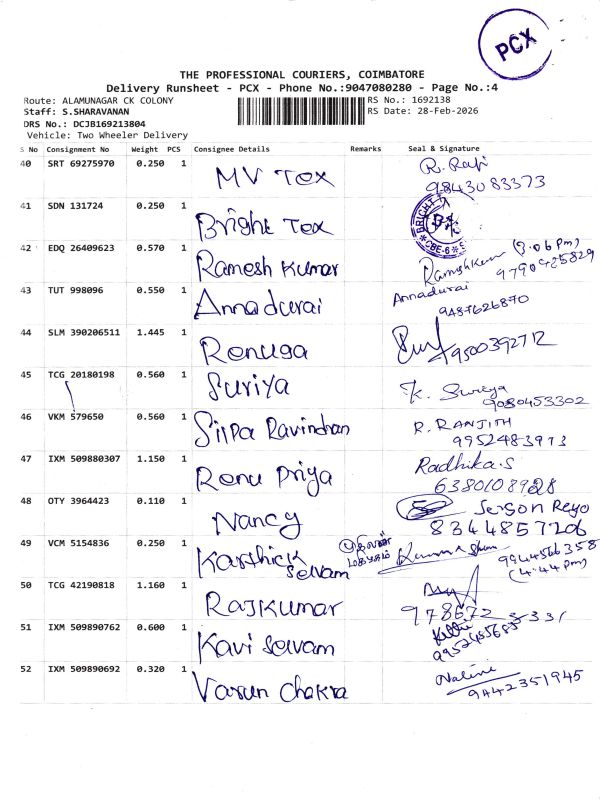 PCX
THE PROFESSIONAL COURIERS, COIMBATORE
Delivery Runsheet - PCX - Phone No.:9047080280 - Page No.:4
Route: ALAMUNAGAR CK COLONY
RS No.: 1692138
Staff: S.SHARAVANAN
RS Date: 28-Feb-2026
DRS No.: DCJB169213804
Vehicle: Two Wheeler Delivery
S No Consignment No Weight PCS Consignee Details Remarks Seal & Signature
40 SRT 69275970 0.250 1 MV Tex R. Raji
9843083373
41 SDN 131724 0.250 1 Bright Tex BRIGHT CBE-6
42 EDQ 26409623 0.570 1 Ramesh Kumar Ramesh Kumar (7.06 Pm)
9790425829
43 TUT 998096 0.550 1 Annadurai Annadurai
9487626870
44 SLM 390206511 1.445 1 Renuga
9500392712
45 TCG 20180198 0.560 1 Suriya K. Sureya
9080453302
46 VKM 579650 0.560 1 Silpa Ravindran R. RANJITH
9952483973
47 IXM 509880307 1.150 1 Renu Priya Radhika.S
6380108928
48 OTY 3964423 0.110 1 Nancy Jerson Reyo
8344857206
49 VCM 5154836 0.250 1 Karthick Selvam
9944566358
(4.44 Pm)
50 TCG 42190818 1.160 1 Rajkumar
51 IXM 509890762 0.600 1 Kavi Selvam
9952485685
52 IXM 509890692 0.320 1 Varun Chakra Nalini
9442351945